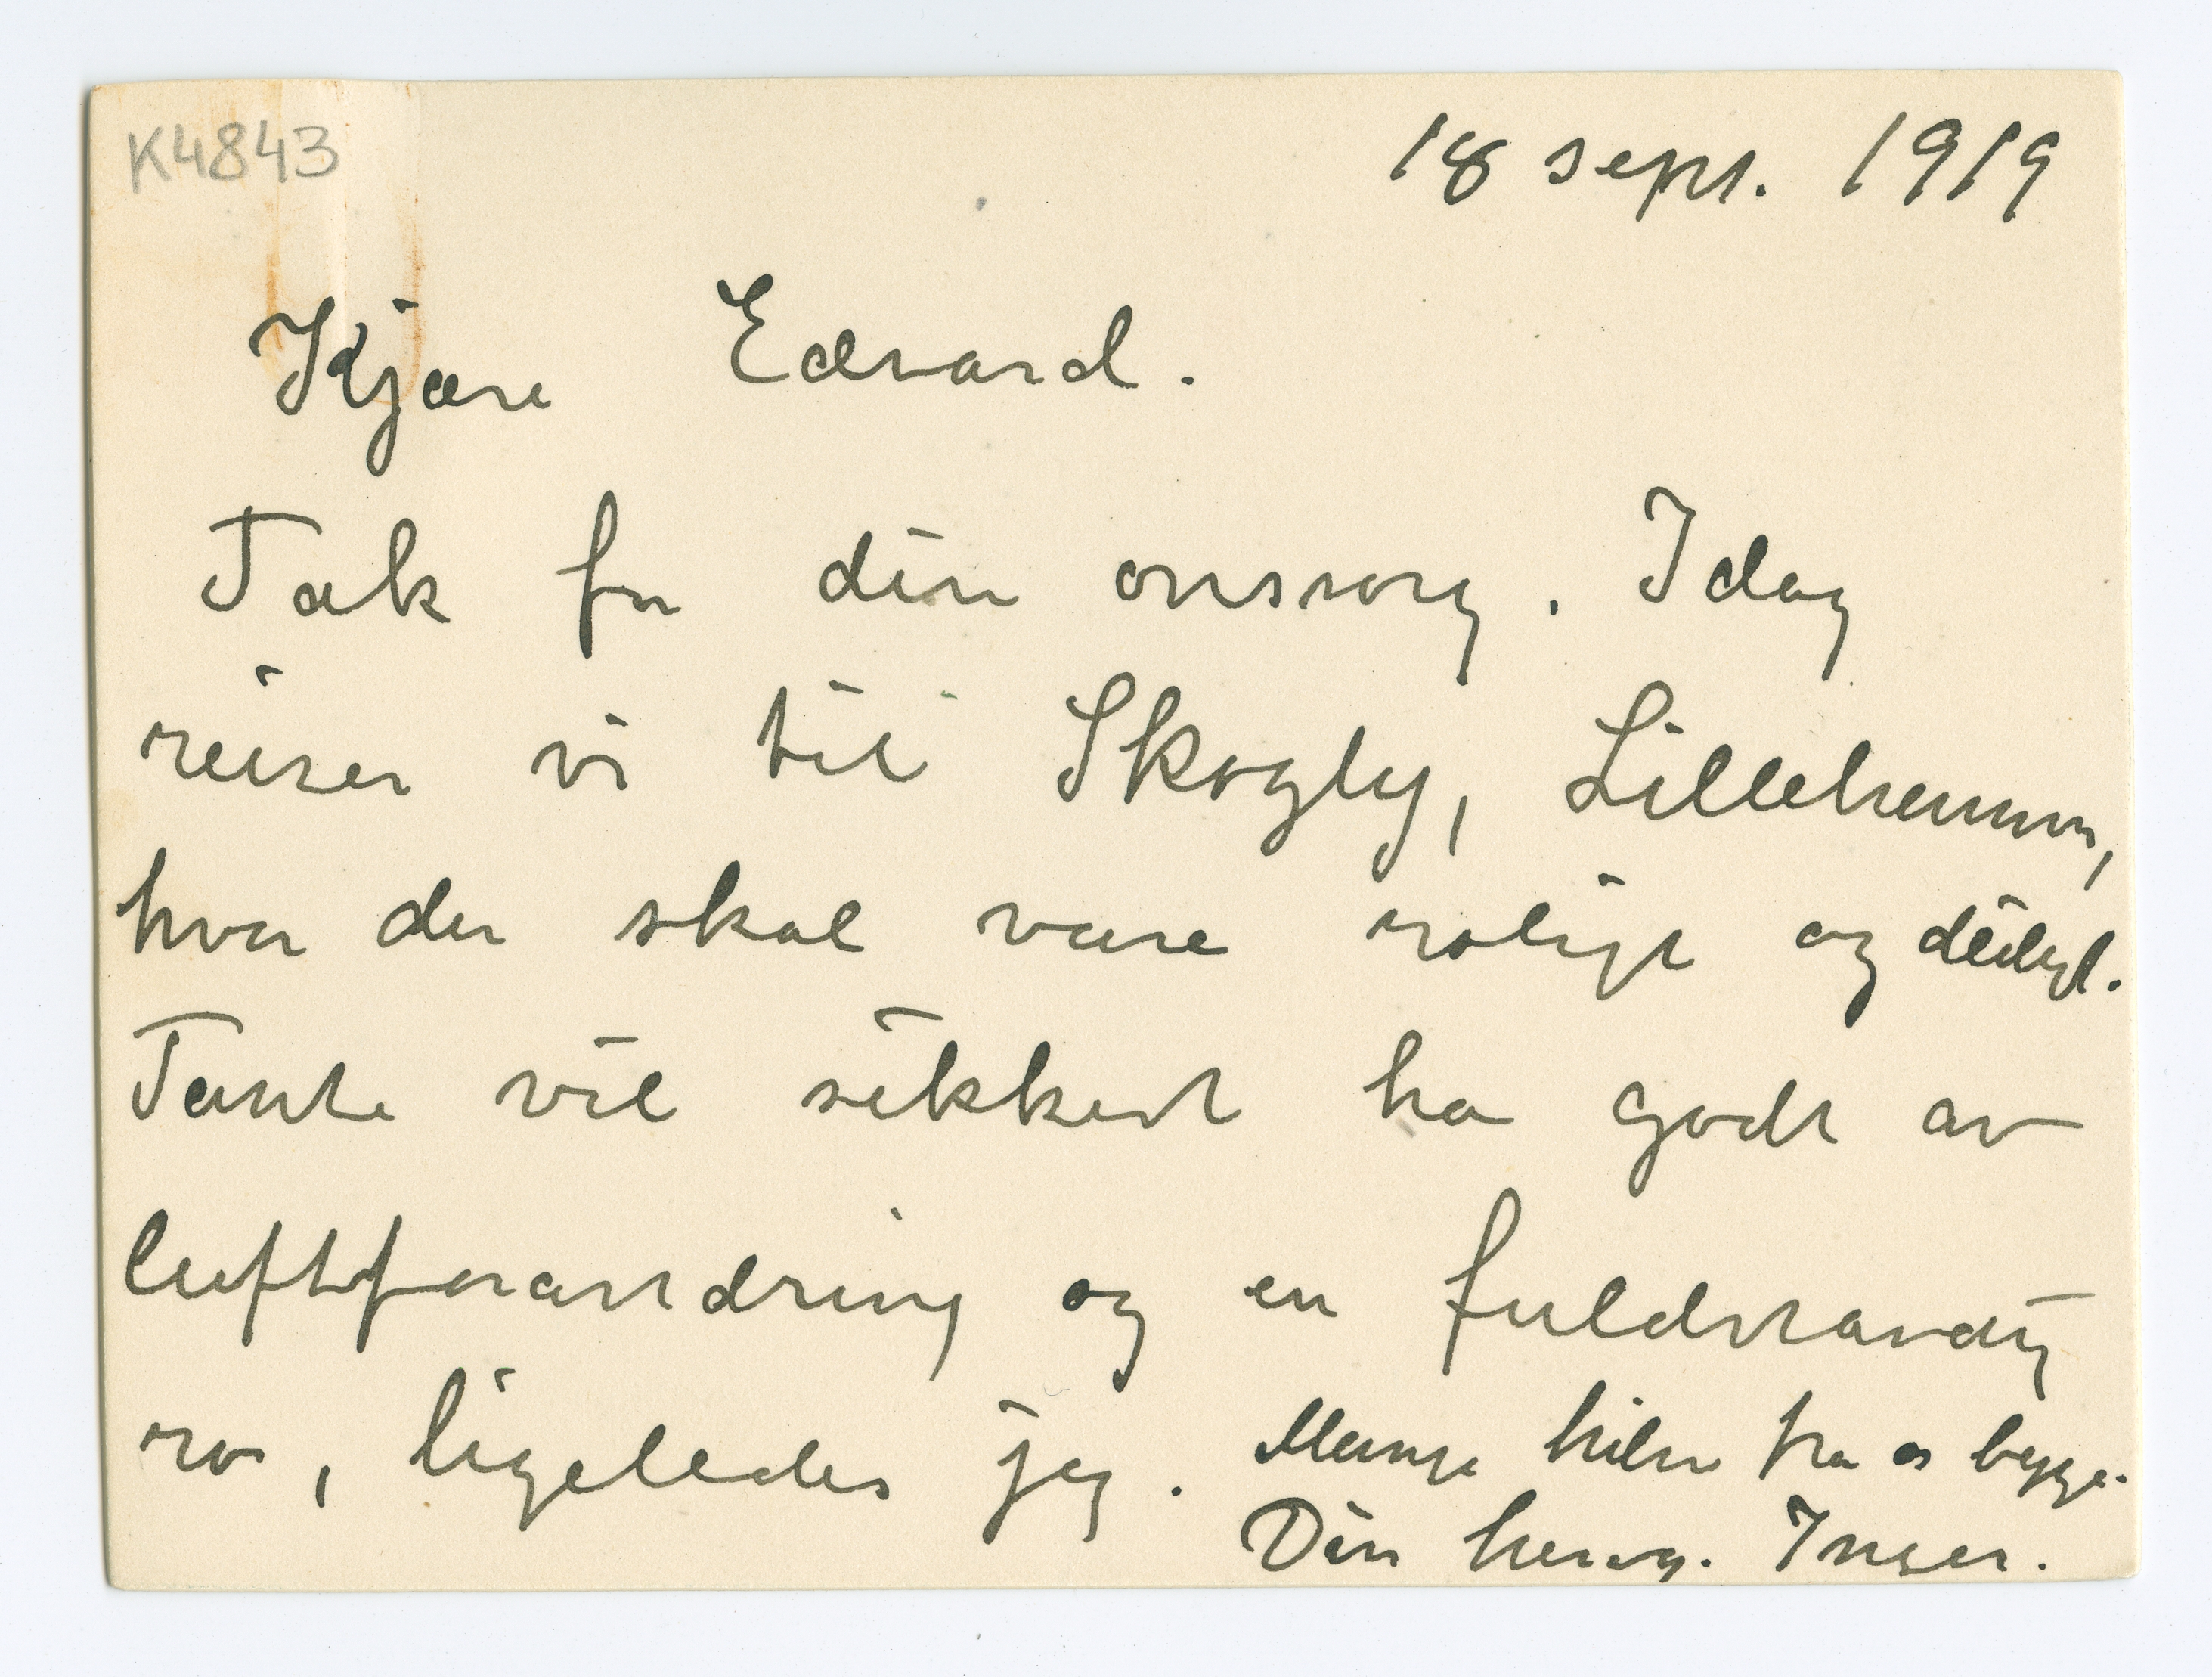 K4843
18 sept. 1919
Kjære Edvard.
Tak for din omsorg. Idag
reiser vi til Skogly, Lillehammer,
hvor der skal være roligt og deiligt.
Tante vil sikkert ha godt av
luftforandring og en fuldstændig
ro, ligeledes jeg. Mange hilsn fra os begge.
Din heng. Inger.